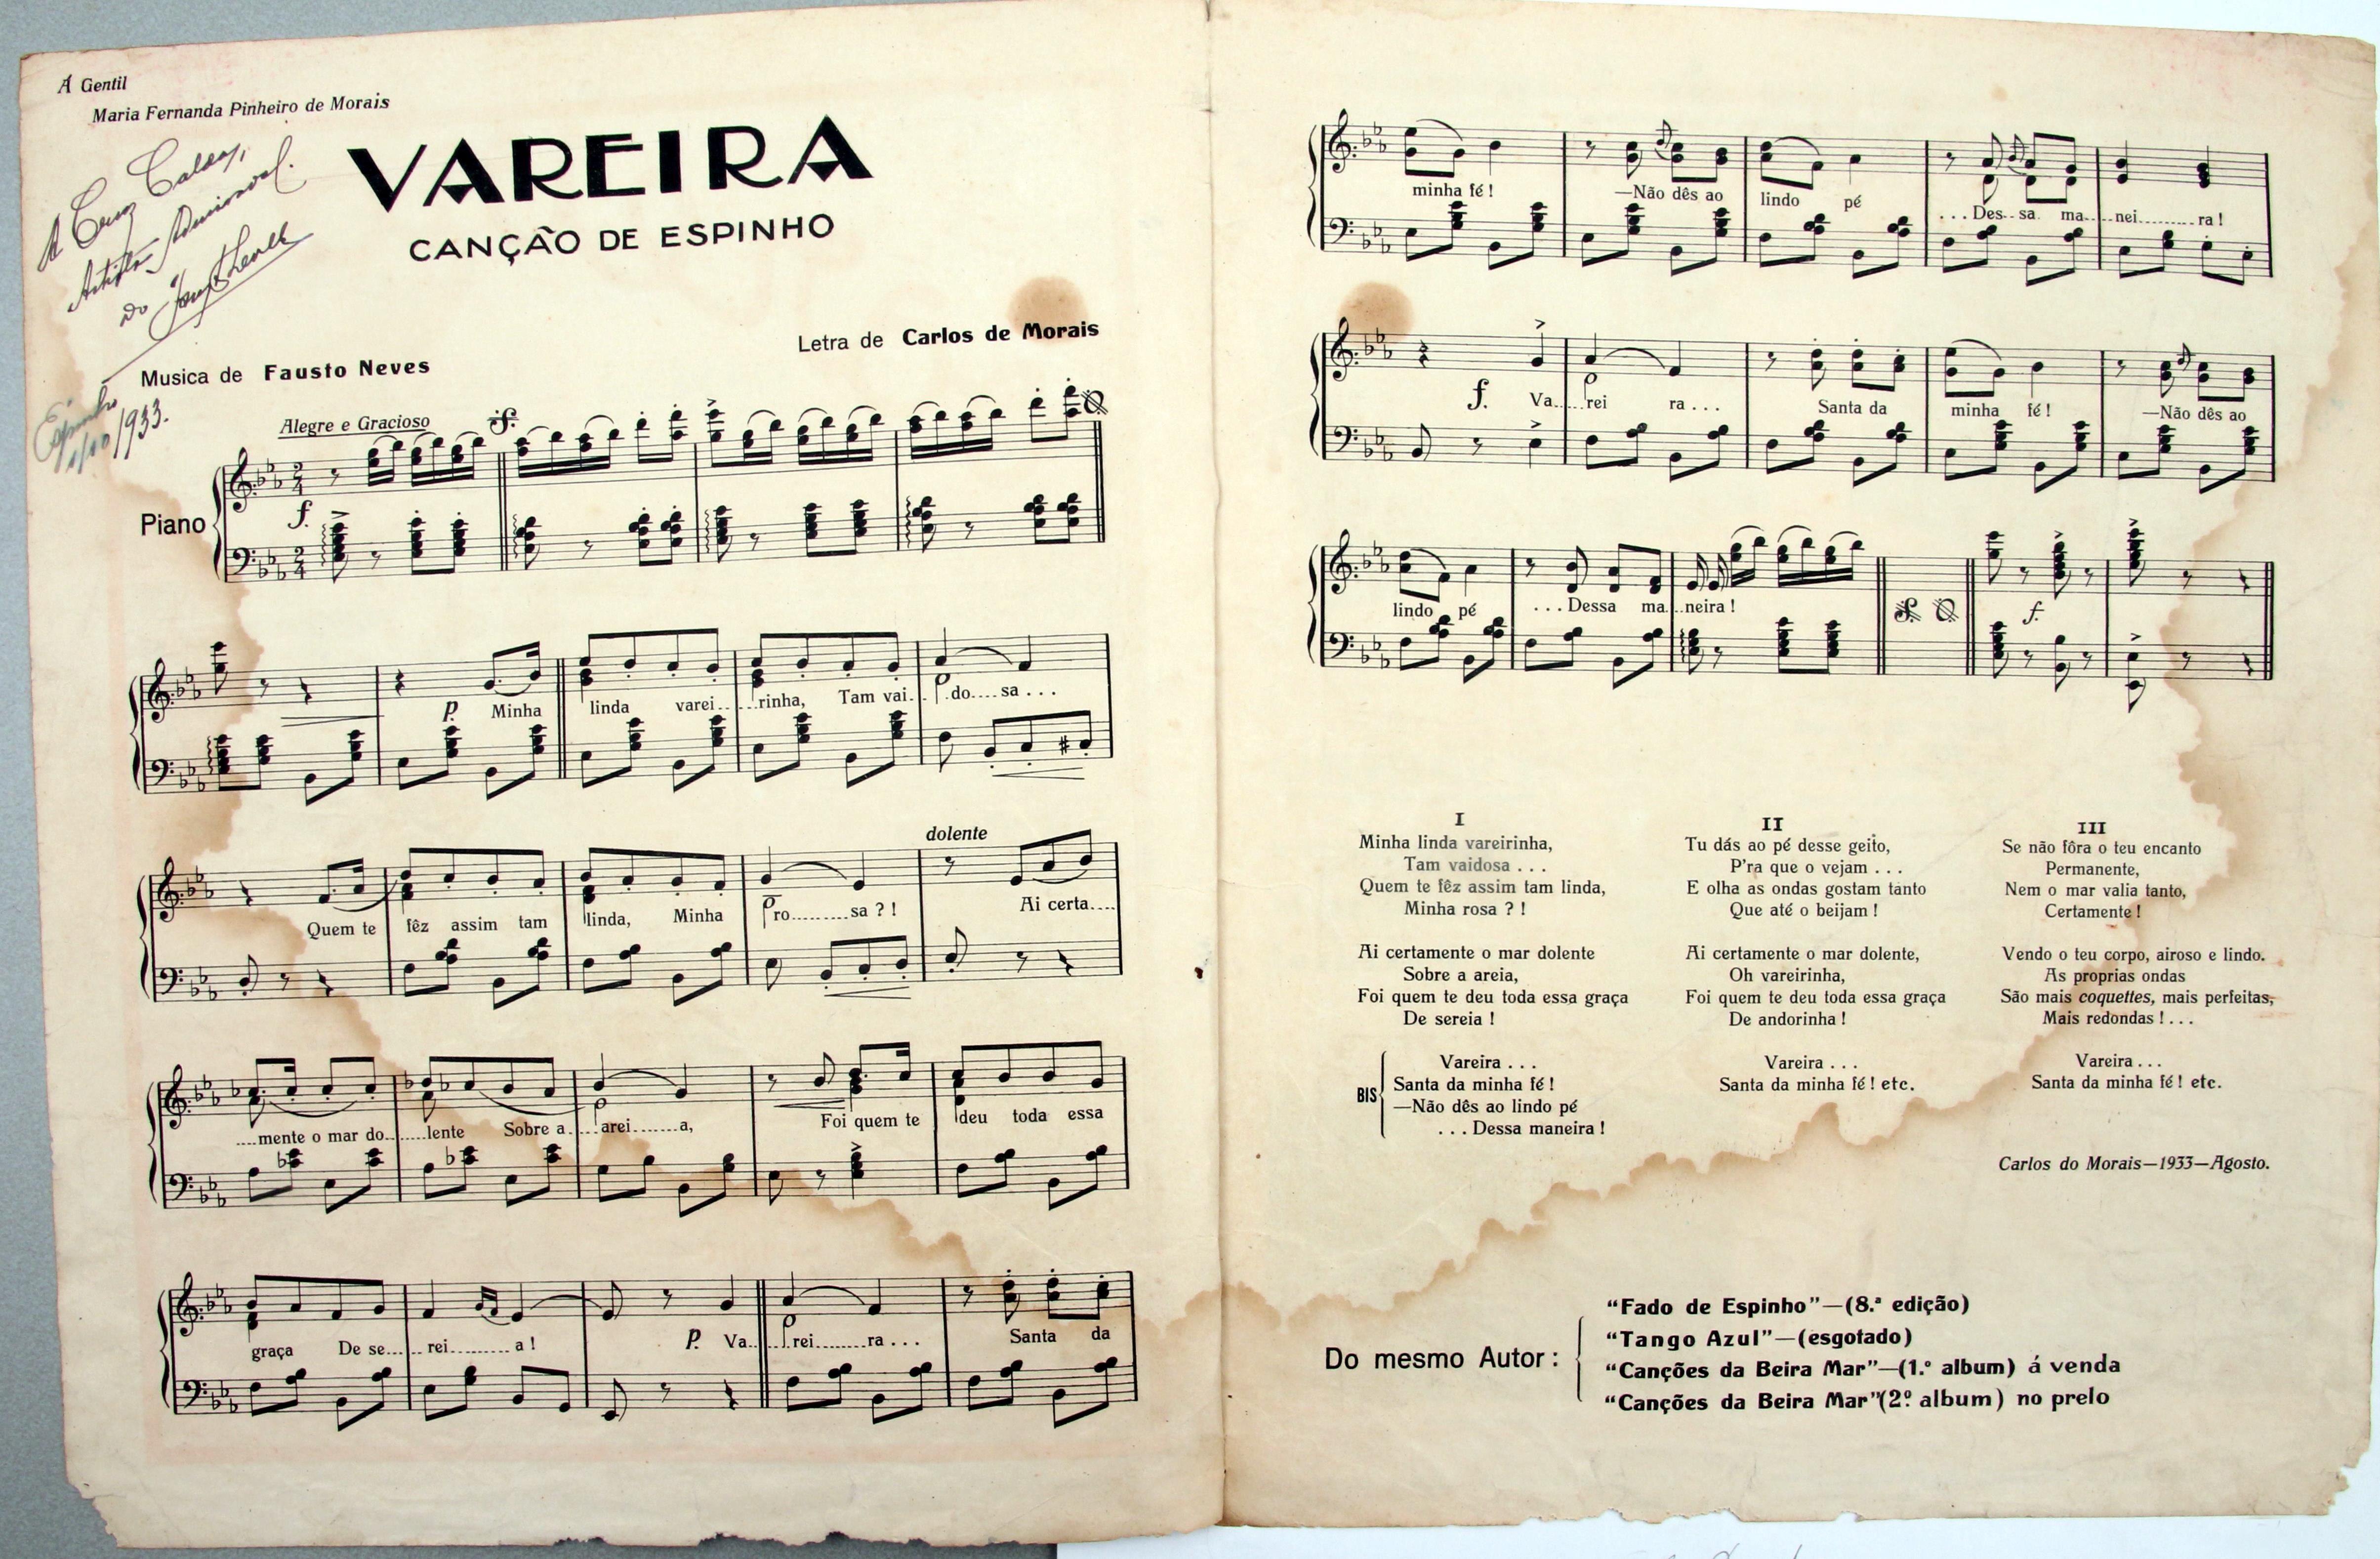 Á Gentil
Maria Fernanda Pinheiro de Morais
VAREIRA
CANÇÃO DE ESPINHO
A Cruz Caldas,
Artista
do
Espinho
1/10/1933.
Letra de Carlos de Morais
Musica de Fausto Neves
Alegre e Gracioso
Piano
f.
p. Minha linda varei....rinha, Tam vai...do....sa...
dolente
Quem te fêz assim tam linda, Minha ro.........sa?! Ai certa....
....mente o mar do........lente Sobre a......arei.......a, Foi quem te deu toda essa
graça De se......rei..........a! p. Va......rei.........ra... Santa da
minha fé! —Não dês ao lindo pé ...Des..sa ma....nei..........ra!
f. Va......rei ra... Santa da minha fé! —Não dês ao
lindo pé ...Dessa ma...neira! f.
I
Minha linda vareirinha,
Tam vaidosa...
Quem te fêz assim tam linda,
Minha rosa?!
Ai certamente o mar dolente
Sobre a areia,
Foi quem te deu toda essa graça
De sereia!
BIS
Vareira...
Santa da minha fé!
—Não dês ao lindo pé
...Dessa maneira!
II
Tu dás ao pé desse geito,
P'ra que o vejam...
E olha as ondas gostam tanto
Que até o beijam!
Ai certamente o mar dolente,
Oh vareirinha,
Foi quem te deu toda essa graça
De andorinha!
Vareira...
Santa da minha fé! etc.
III
Se não fôra o teu encanto
Permanente,
Nem o mar valia tanto,
Certamente!
Vendo o teu corpo, airoso e lindo.
As proprias ondas
São mais coquettes, mais perfeitas,
Mais redondas!...
Vareira...
Santa da minha fé! etc.
Carlos do Morais—1933—Agosto.
Do mesmo Autor:
"Fado de Espinho"—(8.ª edição)
"Tango Azul"—(esgotado)
"Canções da Beira Mar"—(1.º album) á venda
"Canções da Beira Mar"(2.º album) no prelo